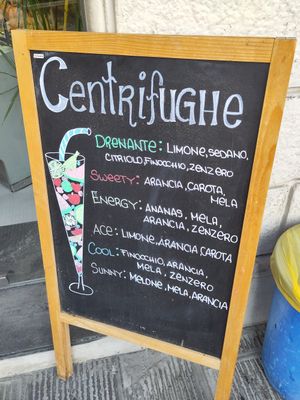 Centrifughe
Drenante: Limone, Sedano,
Citriolo, Finocchio, Zenzero
Sweety: Arancia, Carota,
Mela
Energy: Ananas, Mela,
Arancia, Zenzero
Ace: Limone, Arancia, Carota
Cool: Finocchio, Arancia,
Mela, Zenzero
Sunny: Melone, Mela, Arancia